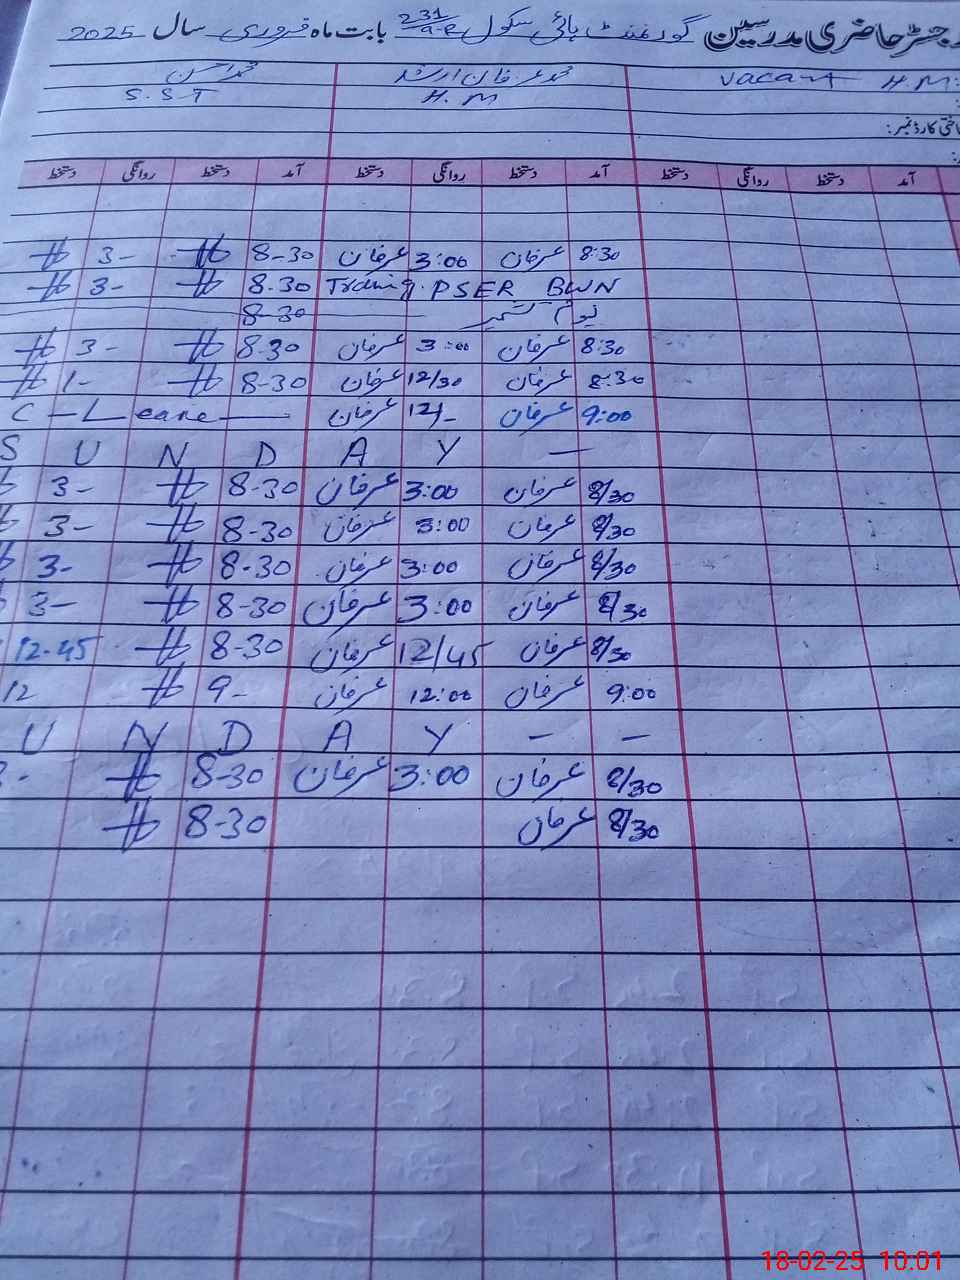 رجسٹر حاضری مدرسین گورنمنٹ ہائی سکول 231/9-R بابت ماہ فروری سال 2025
Vacant H.M. محمد عرفان ارشد محمد احسن
H.M S.S.T
شناختی کارڈ نمبر:
آمد دستخط روانگی دستخط آمد دستخط روانگی دستخط آمد دستخط روانگی دستخط
8:30 عرفان 3:00 عرفان 8-30 3-
Traning. PSER BWN 8.30 3-
یوم کشمیر 8-30
8:30 عرفان 3:00 عرفان 8-30 3-
8:30 عرفان 12/30 عرفان 8-30 1-
9:00 عرفان 12/- عرفان C-Leave
S U N D A Y —
8/30 عرفان 3:00 عرفان 8-30 3-
8/30 عرفان 3:00 عرفان 8-30 3-
8/30 عرفان 3:00 عرفان 8-30 3-
8/30 عرفان 3:00 عرفان 8-30 3-
8/30 عرفان 12/45 عرفان 8-30 12-45
9:00 عرفان 12:00 عرفان 9- 12
U N D A Y - -
8/30 عرفان 3:00 عرفان 8-30 3-
8/30 عرفان 8-30
18-02-25 10:01